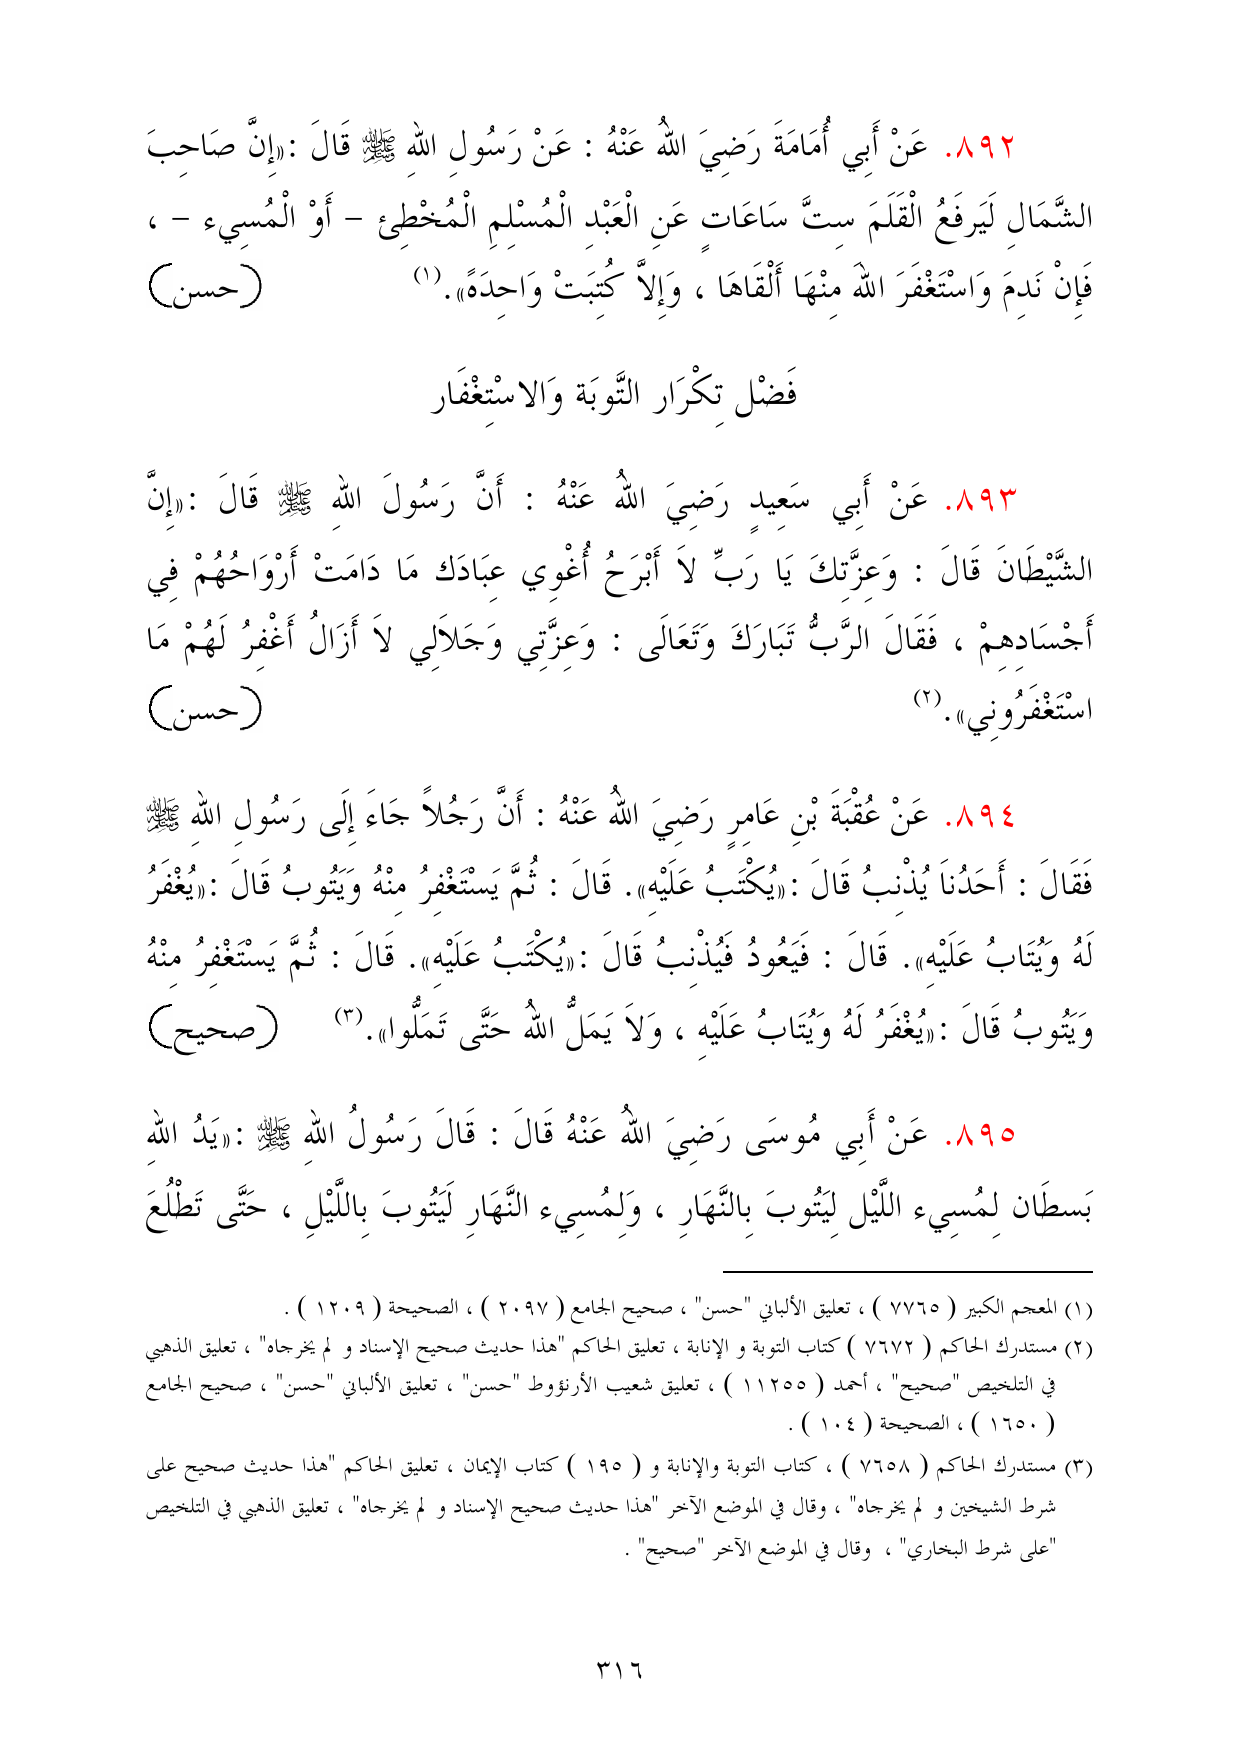 ٨٩٢. عَنْ أَبِي أُمَامَةَ رَضِيَ اللهُ عَنْهُ : عَنْ رَسُولِ اللهِ ﷺ قَالَ :«إِنَّ صَاحِبَ
الشَّمَالِ لَيَرفَعُ الْقَلَمَ سِتَّ سَاعَاتٍ عَنِ الْعَبْدِ الْمُسْلِمِ الْمُخْطِئ – أَوْ الْمُسِيء – ،
فَإِنْ نَدِمَ وَاسْتَغْفَرَ اللهَ مِنْهَا أَلْقَاهَا ، وَإِلاَّ كُتِبَتْ وَاحِدَةً».(١) (حسن)
فَضْل تِكْرَار التَّوبَة وَالاسْتِغْفَار
٨٩٣. عَنْ أَبِي سَعِيدٍ رَضِيَ اللهُ عَنْهُ : أَنَّ رَسُولَ اللهِ ﷺ قَالَ :«إِنَّ
الشَّيْطَانَ قَالَ : وَعِزَّتِكَ يَا رَبِّ لاَ أَبْرَحُ أُغْوِي عِبَادَك مَا دَامَتْ أَرْوَاحُهُمْ فِي
أَجْسَادِهِمْ ، فَقَالَ الرَّبُّ تَبَارَكَ وَتَعَالَى : وَعِزَّتِي وَجَلاَلِي لاَ أَزَالُ أَغْفِرُ لَهُمْ مَا
اسْتَغْفَرُونِي».(٢) (حسن)
٨٩٤. عَنْ عُقْبَةَ بْنِ عَامِرٍ رَضِيَ اللهُ عَنْهُ : أَنَّ رَجُلاً جَاءَ إِلَى رَسُولِ اللهِ ﷺ
فَقَالَ : أَحَدُنَا يُذْنِبُ قَالَ :«يُكْتَبُ عَلَيْهِ». قَالَ : ثُمَّ يَسْتَغْفِرُ مِنْهُ وَيَتُوبُ قَالَ :«يُغْفَرُ
لَهُ وَيُتَابُ عَلَيْهِ». قَالَ : فَيَعُودُ فَيُذْنِبُ قَالَ :«يُكْتَبُ عَلَيْهِ». قَالَ : ثُمَّ يَسْتَغْفِرُ مِنْهُ
وَيَتُوبُ قَالَ :«يُغْفَرُ لَهُ وَيُتَابُ عَلَيْهِ ، وَلاَ يَمَلُّ اللهُ حَتَّى تَمَلُّوا».(٣) (صحيح)
٨٩٥. عَنْ أَبِي مُوسَى رَضِيَ اللهُ عَنْهُ قَالَ : قَالَ رَسُولُ اللهِ ﷺ :«يَدُ اللهِ
بَسطَان لِمُسِيء اللَّيْل لِيَتُوبَ بِالنَّهَارِ ، وَلِمُسِيء النَّهَارِ لَيَتُوبَ بِاللَّيْلِ ، حَتَّى تَطْلُعَ
(١) المعجم الكبير ( ٧٧٦٥ ) ، تعليق الألباني "حسن" ، صحيح الجامع ( ٢٠٩٧ ) ، الصحيحة ( ١٢٠٩ ) .
(٢) مستدرك الحاكم ( ٧٦٧٢ ) كتاب التوبة و الإنابة ، تعليق الحاكم "هذا حديث صحيح الإسناد و لم يخرجاه" ، تعليق الذهبي
في التلخيص "صحيح" ، أحمد ( ١١٢٥٥ ) ، تعليق شعيب الأرنؤوط "حسن" ، تعليق الألباني "حسن" ، صحيح الجامع
( ١٦٥٠ ) ، الصحيحة ( ١٠٤ ) .
(٣) مستدرك الحاكم ( ٧٦٥٨ ) ، كتاب التوبة والإنابة و ( ١٩٥ ) كتاب الإيمان ، تعليق الحاكم "هذا حديث صحيح على
شرط الشيخين و لم يخرجاه" ، وقال في الموضع الآخر "هذا حديث صحيح الإسناد و لم يخرجاه" ، تعليق الذهبي في التلخيص
"على شرط البخاري" ، وقال في الموضع الآخر "صحيح" .
٣١٦